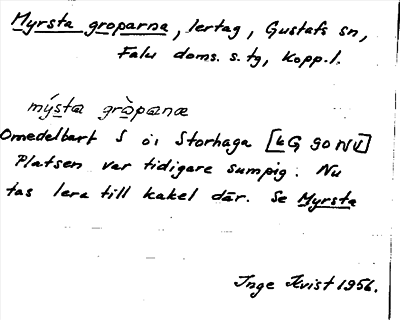 Myrsta groparna, lertag, Gustafs sn,
Falu doms. s. tg, Kopp. l.
mýsta gròpænæ
Omedelbart S öı Storhaga [LG 90 NV]
Platsen var tidigare sumpig. Nu
tas lera till kakel där. Se Myrsta
Inge Kvist 1956.